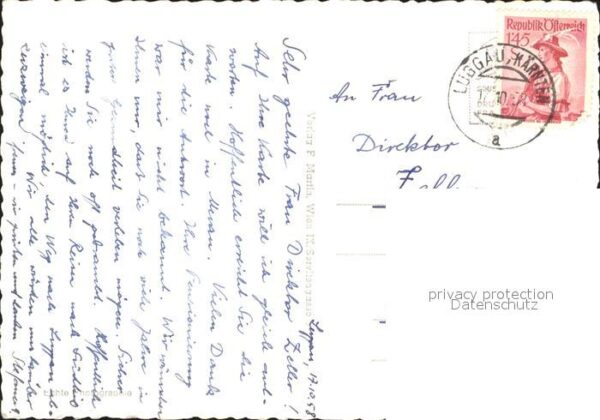 Luggau 17.10.58
Sehr geehrte Frau Direktor Zeller!
Auf Ihre Karte will ich gleich ant-
worten. Hoffentlich erreicht Sie die
Karte noch in Meran. Vielen Dank
für die Antwort. Ihre Pensionierung
war mir nicht bekannt. Wir wünschen
Ihnen nur, dass Sie noch viele Jahre in
guter Gesundheit verleben mögen. Sicher
werden Sie noch oft gebraucht. Hoffentlich
ist es Ihnen auf Ihren Reisen nach Südtirol
einmal möglich, den Weg nach Luggau
Wir alle würden uns
freuen
An Frau
Direktor
Republik Österreich
145
LUGGAU, KÄRNTEN
a
Echte Photographie
Wien
privacy protection
Datenschutz